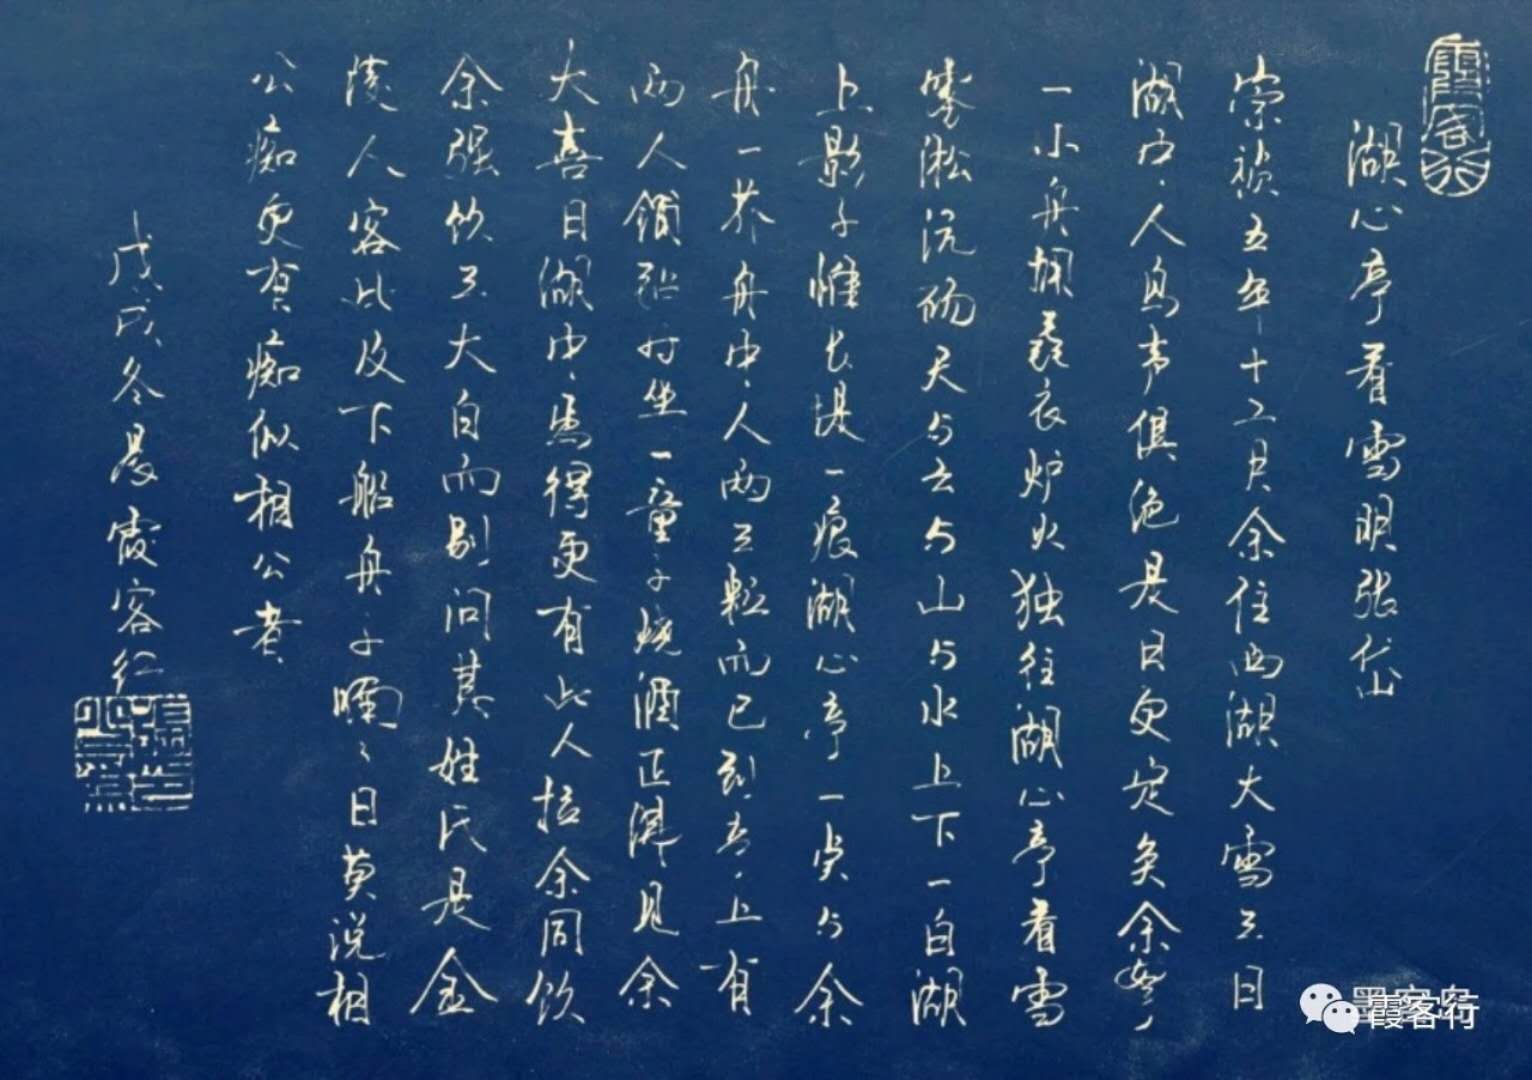 霞客行
湖心亭看雪明张岱
崇祯五年十二月余住西湖大雪三日
湖中人鸟声俱绝是日更定矣余拏
一小舟拥毳衣炉火独往湖心亭看雪
雾凇沆砀天与云与山与水上下一白湖
上影子惟长堤一痕湖心亭一点与余
舟一芥舟中人两三粒而已到亭上有
两人铺毡对坐一童子烧酒正沸见余
大喜曰湖中焉得更有此人拉余同饮
余强饮三大白而别问其姓氏是金
陵人客此及下船舟子喃々曰莫说相
公痴更有痴似相公者
戊戌冬晨霞客行
霞客行